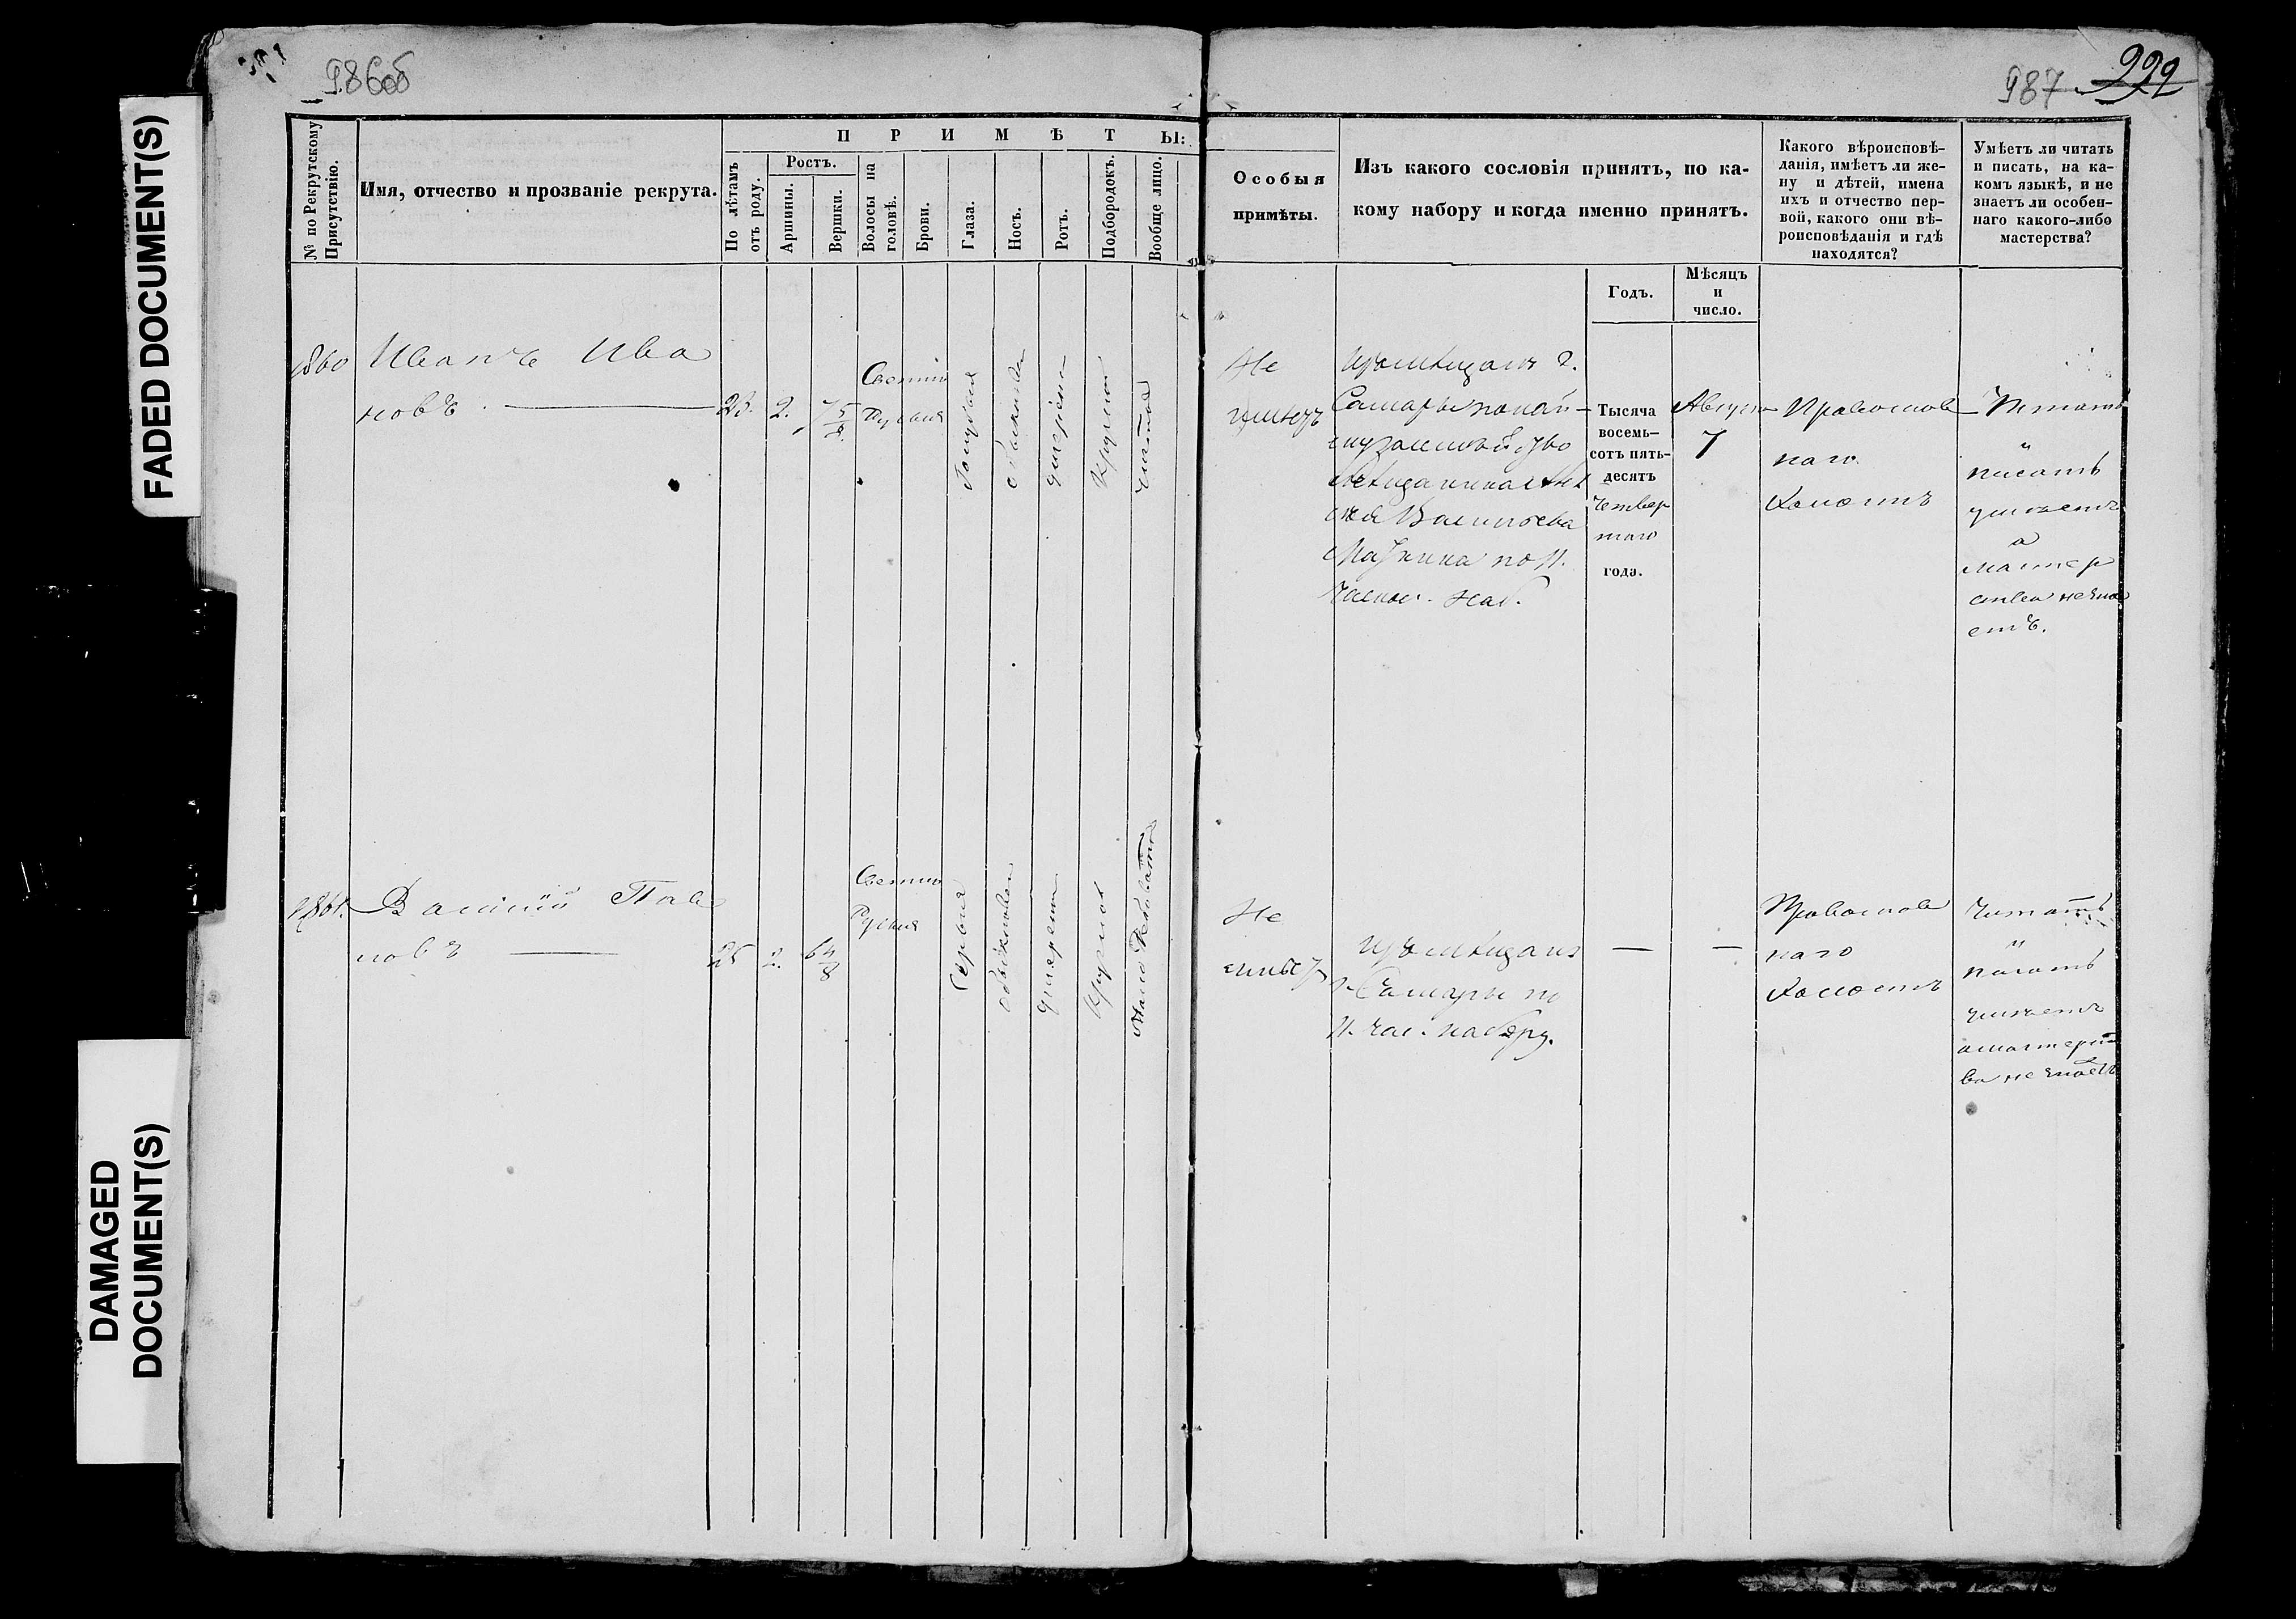 FADED DOCUMENT(S)
DAMAGED
DOCUMENT(S)
986об
987
992
№ по Рекрутскому
Присутствію.
Имя, отчество и прозваніе рекрута.
ПРИМѢТЫ:
По лѣтамъ
отъ роду.
Ростъ.
Аршины.
Вершки.
Волосы на
головѣ.
Брови.
Глаза.
Носъ.
Ротъ.
Подбородокъ.
Вообще лицо.
Особыя
примѣты.
Изъ какого сословія принятъ, по ка-
кому набору и когда именно принятъ.
Какого вѣроисповѣ-
данія, имѣетъ ли же-
ну и дѣтей, имена
ихъ и отчество пер-
вой, какого они вѣ-
роисповѣданія и гдѣ
находятся?
Умѣетъ ли читать
и писать, на ка-
комъ языкѣ, и не
знаетъ ли особен-
наго какого-либо
мастерства?
Годъ.
Мѣсяцъ
и
число.
1860
Иванъ Ива
новъ
23. 2. 7 5/8.
Светло
Русыя
Голубыя
обыкновен
умерен
Круглой
чистое
Не
имеетъ
Изъ мещанъ г.
Самары по най
му за
мещанина
Васильева
по 11.
част. наб.
Тысяча
восемь-
сотъ пять-
десятъ
четвер
таго
года.
Август
7
Православ
наго
Холостъ
Читать
и
писать
умеетъ
а
мастер
ства не зна
етъ.
1861.
Василій Пав
ловъ
25 2. 6 4/8
Светло
Русыя
Серыя
обыкновен
умерен
Круглой
мало Рябоватое
Не
имеетъ
Изъ мещанъ
г. Самары по
11. час. набору.
Православ
наго
Холостъ
Читать
и
писать
умеетъ
а мастерст
ва не знаетъ